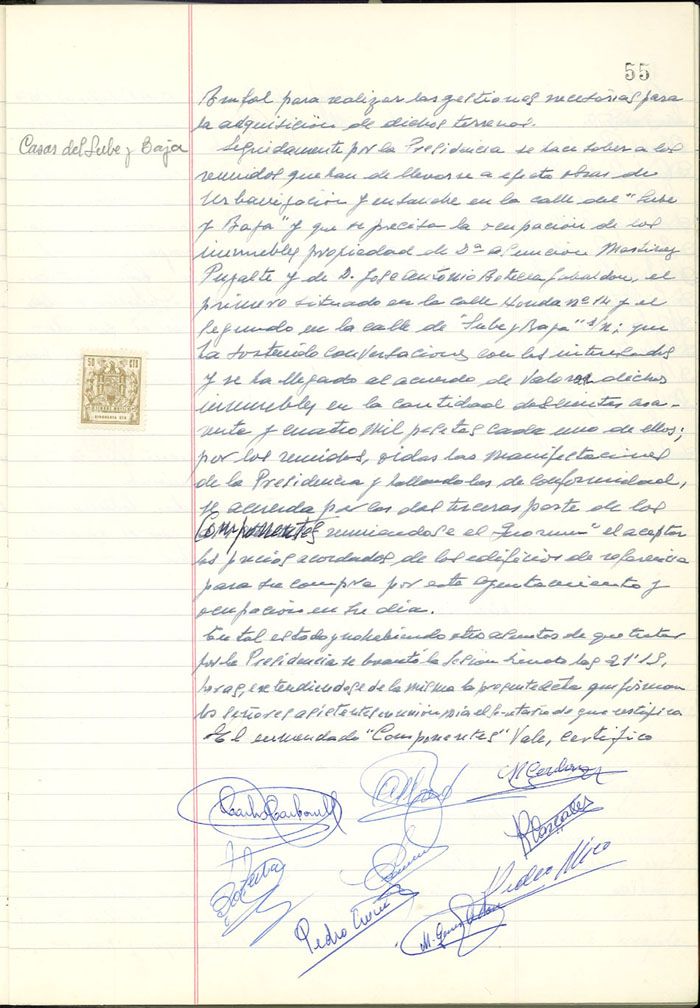 55
Bmfol para realizar las gestiones necesarias para
la adquisición de dichos terrenos.
Casas del Sube y Baja
Seguidamente por la Presidencia se hace saber a los
reunidos que han de llevarse a efecto obras de
Urbanización y ensanche en la calle del "Sube
y Baja" y que se precisa la ocupación de los
inmuebles propiedad de Dª Asunción Martinez
Pujalte y de D. José Antonio Botella Gabaldon, el
primero situado en la calle Honda nº 14 y el
segundo en la calle de "Sube y Baja" s/n; que
ha sostenido conversaciones con los interesados
y se ha llegado al acuerdo de valorar dichos
inmuebles en la cantidad de
y cuatro mil pesetas cada uno de ellos;
por los reunidos, oidas las manifestaciones
de la Presidencia y hallandolas de conformidad,
se acuerda por las dos terceras parte de los
Componentes reuniendose el "Quorum" el aceptar
los precios acordados de los edificios de referencia
para su compra por este Ayuntamiento y
ocupación en su dia.
En tal estado y no habiendo otro asuntos de que tratar
por la Presidencia se levantó la Sesion siendo las 21'15,
horas, extendiendose de la misma la presente acta que firman
los señores asistentes en unión mia el Secretario de que certifico
El enmendado "Componentes" Vale, certifico
Carlos Carbonell
Pedro
Pedro Mico